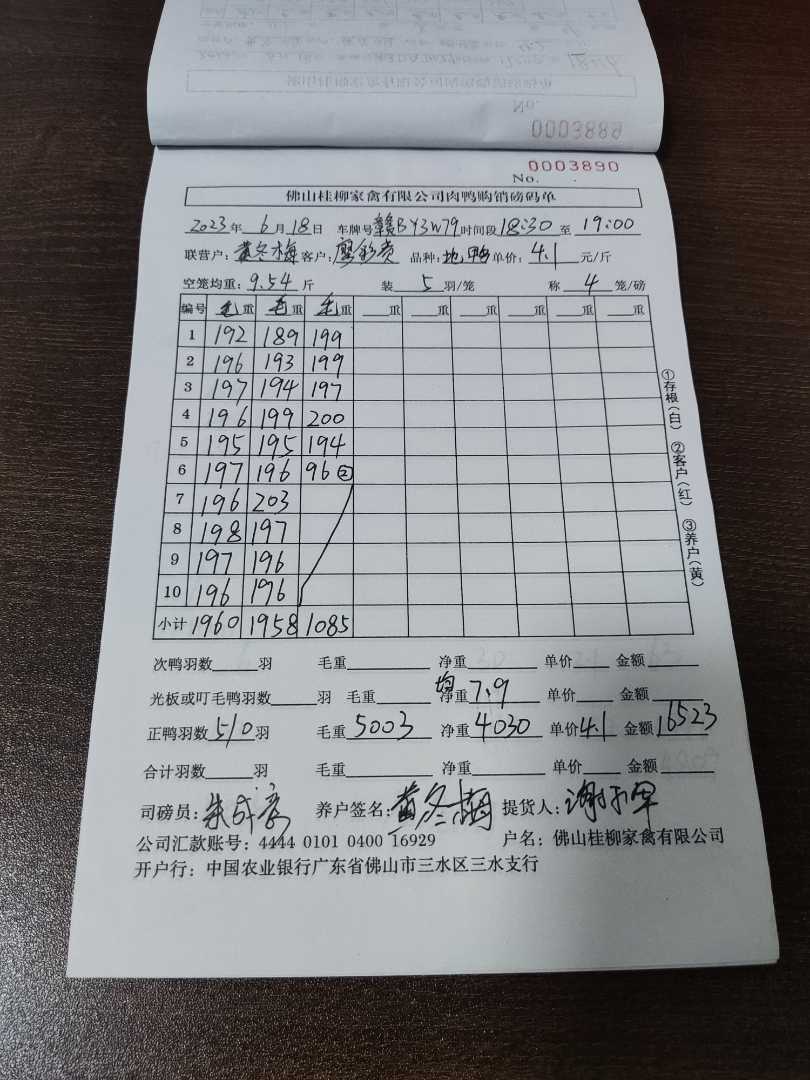 0003889
No.
0003890
No.
佛山桂柳家禽有限公司肉鸭购销磅码单
2023年 6月18日 车牌号赣BY3W79时间段18:30至 19:00
联营户:黄冬梅客户:廖彩贵 品种:地鸭单价:4.1元/斤
空笼均重:9.54斤 装 5 羽/笼 称 4 笼/磅
编号 毛重 毛重 毛重 重 重 重 重 重 重
1 192 189 199
2 196 193 199
3 197 194 197
4 196 199 200
5 195 195 194
6 197 196 96②
7 196 203
8 198 197
9 197 196
10 196 196
小计 1960 1958 1085
①存根(白) ②客户(红) ③养户(黄)
次鸭羽数 羽 毛重 净重 单价 金额
光板或叮毛鸭羽数 羽 毛重 净重 均7.9 单价 金额
正鸭羽数510羽 毛重 5003 净重 4030 单价4.1 金额16523
合计羽数 羽 毛重 净重 单价 金额
司磅员: 养户签名:黄冬梅 提货人:
公司汇款账号:4444 0101 0400 16929 户名:佛山桂柳家禽有限公司
开户行:中国农业银行广东省佛山市三水区三水支行